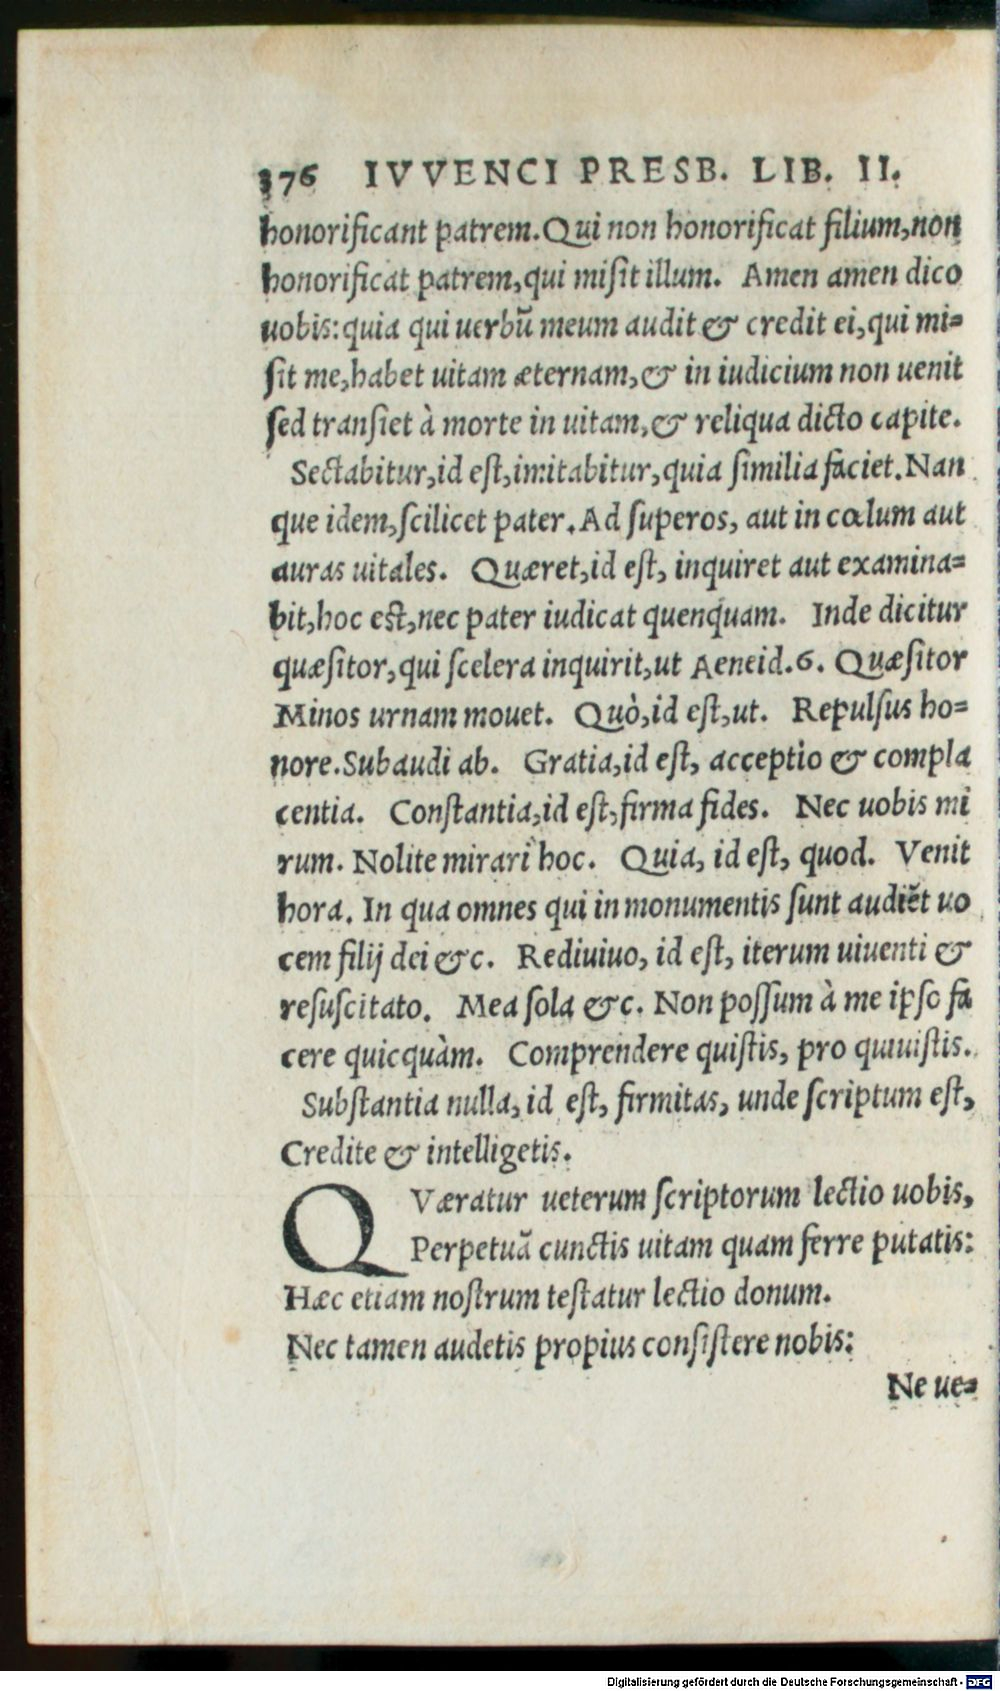 376 IVVENCI PRESB. LIB. II.
honorificant patrem. Qui non honorificat filium, non
honorificat patrem, qui misit illum. Amen amen dico
uobis: quia qui uerbū meum audit & credit ei, qui mi=
sit me, habet uitam æternam, & in iudicium non uenit
sed transiet à morte in uitam, & reliqua dicto capite.
Sectabitur, id est, imitabitur, quia similia faciet. Nan
que idem, scilicet pater. Ad superos, aut in cœlum aut
auras uitales. Quæret, id est, inquiret aut examina=
bit, hoc est, nec pater iudicat quenquam. Inde dicitur
quæsitor, qui scelera inquirit, ut Aeneid. 6. Quæsitor
Minos urnam mouet. Quò, id est, ut. Repulsus ho=
nore. Subaudi ab. Gratia, id est, acceptio & compla
centia. Constantia, id est, firma fides. Nec uobis mi
rum. Nolite mirari hoc. Quia, id est, quod. Venit
hora. In qua omnes qui in monumentis sunt audiēt uo
cem filij dei &c. Rediuiuo, id est, iterum uiuenti &
resuscitato. Mea sola &c. Non possum à me ipso fa
cere quicquàm. Comprendere quistis, pro quiuistis.
Substantia nulla, id est, firmitas, unde scriptum est,
Credite & intelligetis.
QVæratur ueterum scriptorum lectio uobis,
Perpetuā cunctis uitam quam ferre putatis:
Hæc etiam nostrum testatur lectio donum.
Nec tamen audetis propius consistere nobis:
Ne ue=
Digitalisierung gefördert durch die Deutsche Forschungsgemeinschaft - DFG